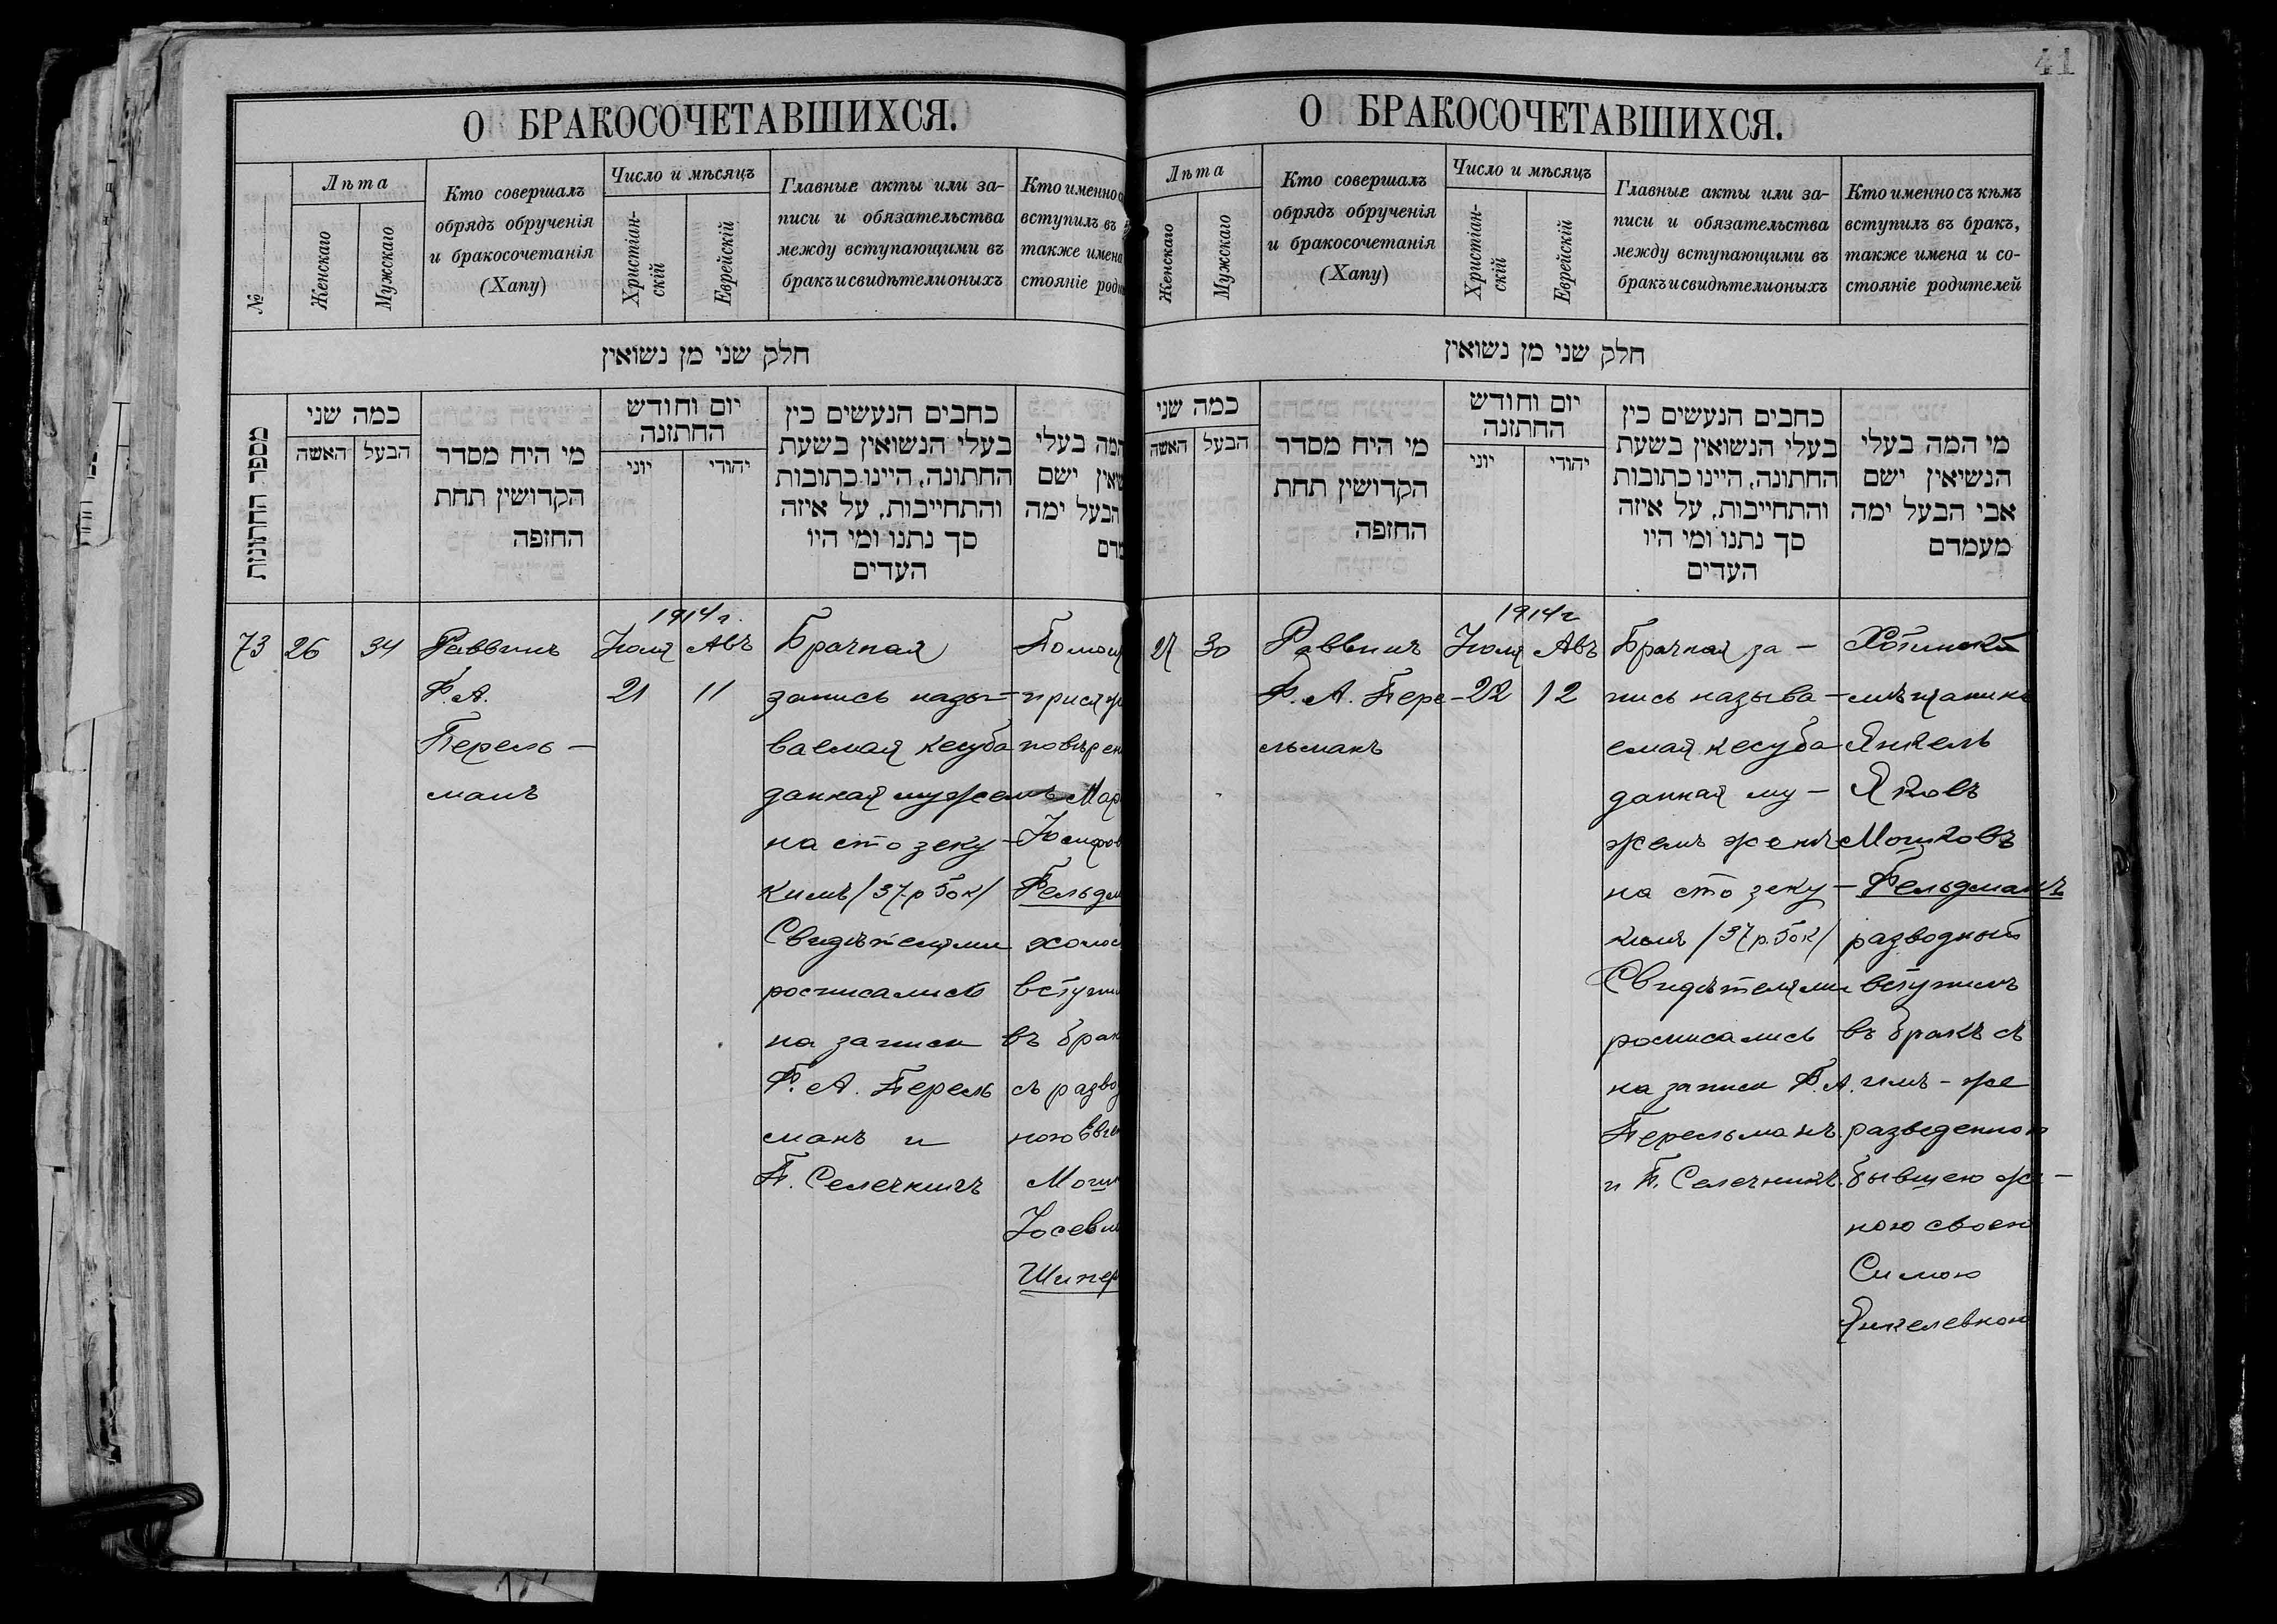 О БРАКОСОЧЕТАВШИХСЯ.
№
Лѣта
Женскаго
Мужскаго
Кто совершалъ
обрядъ обрученія
и бракосочетанія
(Хапу)
Число и мѣсяцъ
Христіан-
скій
Еврейскій
Главные акты или за-
писи и обязательства
между вступающими въ
бракъ и свидѣтели оныхъ
Кто именно с
вступилъ въ
также имена
стояніе роди
חלק שני מן נשואין
מספר החתונות
כמה שני
האשה
הבעל
מי היח מסדר
הקדושין תחת
החופה
יום וחודש
החתונה
יוני
יהודי
כתבים הנעשים כין
בעלי הנשואין בשעת
החתונה, היינו כתובות
והתחייבות, על איזה
סך נתנו ומי היו
העדים
המה בעלי
שיאין ישם
הבעל ימה
מדם
73
26
34
Раввинъ
Ф. А.
Перель-
манъ
1914 г.
Іюля
21
Авъ
11
Брачная
запись назы-
ваемая кесуба
данная мужемъ
на сто зеку-
кимъ /37 р 50 к/
Свидѣтелями
росписались
на записи
Ф. А. Перель
манъ и
П. Селечникъ
Помощ
присяж
повѣрен
Мар
Іосифов
Фельдм
холос
вступи
въ брак
съ развод
ною Евген
Мошк
Іосевн
Шипер
41
О БРАКОСОЧЕТАВШИХСЯ.
Лѣта
Женскаго
Мужскаго
Кто совершалъ
обрядъ обрученія
и бракосочетанія
(Хапу)
Число и мѣсяцъ
Христіан-
скій
Еврейскій
Главные акты или за-
писи и обязательства
между вступающими въ
бракъ и свидѣтели оныхъ
Кто именно съ кѣмъ
вступилъ въ бракъ,
также имена и со-
стояніе родителей
חלק שני מן נשואין
כמה שני
האשה
הבעל
מי היח מסדר
הקדושין תחת
החופה
יום וחודש
החתונה
יוני
יהודי
כתבים הנעשים כין
בעלי הנשואין בשעת
החתונה, היינו כתובות
והתחייבות, על איזה
סך נתנו ומי היו
העדים
מי המה בעלי
הנשיאין ישם
אבי הבעל ימה
מעמדם
30
Раввинъ
Ф. А. Пере-
льманъ
1914 г
Іюля
22
Авъ
12
Брачная за-
пись называ-
емая кесуба
данная му-
жемъ женѣ
на сто зеку-
кимъ /37 р. 50 к/
Свидѣтелями
росписались
на записи Ф. А.
Перельманъ
и П. Селечникъ.
Хотинскій
мѣщанинъ
Янкель
Яковъ
Мошковъ
Фельдманъ
разводный
вступилъ
въ бракъ съ
имъ-же
разведенною
бывшею же-
ною своею
Симою
Янкелевною